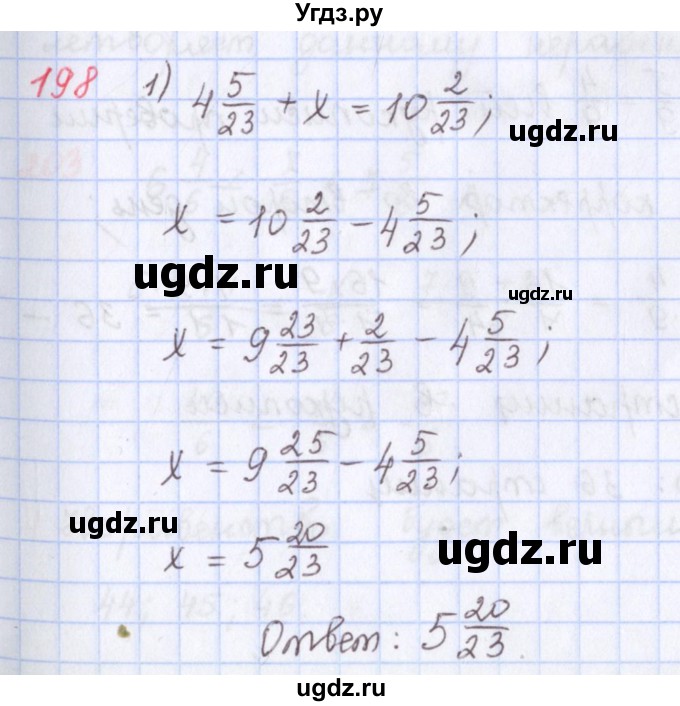 Угдз.ру
198 1) 4 5/23 + x = 10 2/23;
x = 10 2/23 − 4 5/23;
x = 9 23/23 + 2/23 − 4 5/23;
x = 9 25/23 − 4 5/23;
x = 5 20/23
Ответ: 5 20/23.
ugdz.ru
ugdz.ru
ugdz.ru
ugdz.ru
ugdz.ru
ugdz.ru
ugdz.ru